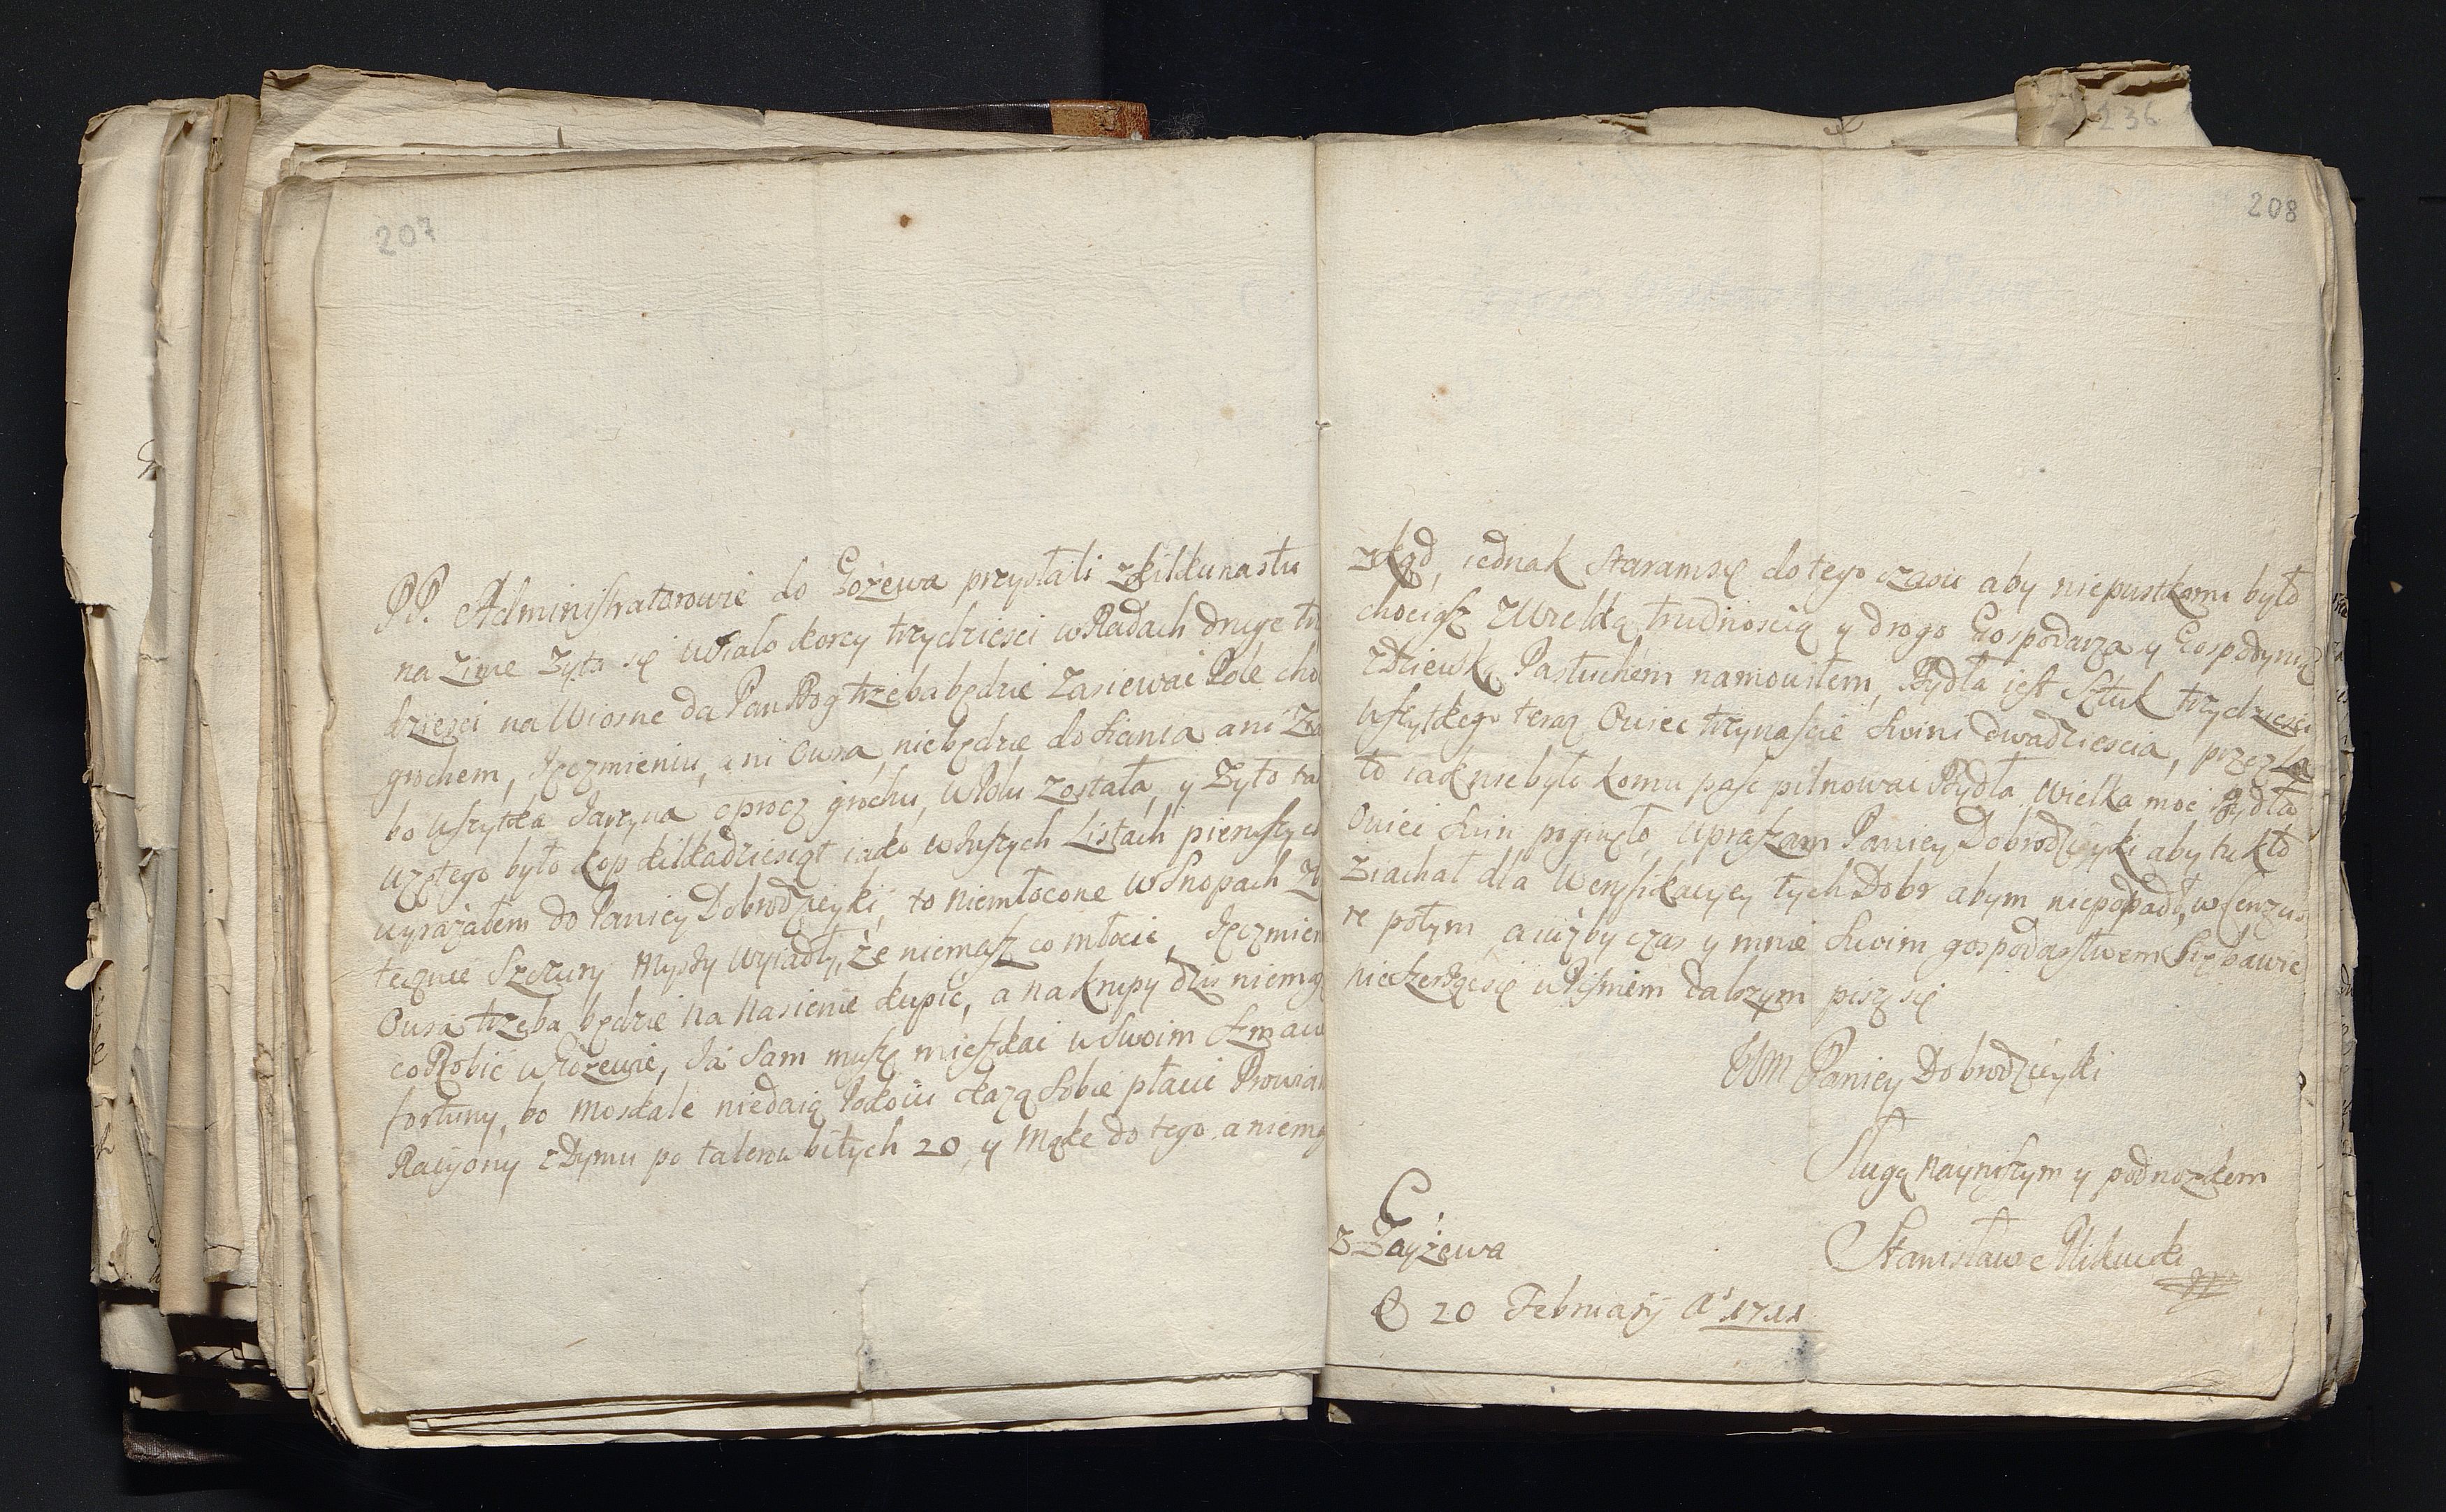 207
PP. Administratorowie do Gożewa przysłali zkilkunastu
na Zime Zyta się Wsiało korcy trzydziesci w Radach druge
dziesci na Wiosne da Pan Bog trzeba będzie Zasiewać Pole
grochem, Jęczmieniu, ani Owsa, niebędzie do siania ani
bo wszytka Jarzyna oprocz grochu, w Polu Została, y Zyto
było kop kilkadziesiąt iako w Listach pierwszych
wyrażałem do Paniey Dobrodzieyki, to niemłocone w Snopach
Szczury myszy wyiadły, że niemasz co młocić, Jęczmien
Owsa trzeba będzie na Nasienie kupić, a na krupy dla
co Robić w Gożewie, Ja Sam muszę mieszkać w Swoim
fortuny, bo Moskale niedaią Pokoiu każą Sobie płacić
Racyony z Dymu po talerow bitych 20, y Mąke do tego a
236
208
zkąd, iednak Staramsię do tego czasu aby niepustkami było
chociasz z Wielką trudnością y drogo Gospodarza y Gospodynią
z Dziewką Pastuchem namowiłem, Bydła iest Sztuk trzydziesci
wszytkego teraz Owiec trzynascie Swini dwadziescia, przez
to iak niebyło komu paść pilnować Bydła Wielka moc Bydła
Owiec Swin poginęło, Upraszam Paniey Dobrodzieyki aby tu kto
Ziachał dla Weryfikacyey tych Dobr abym niepopadł, w Cenzu
re potym, a iużby czas y mnie Swoim gospodarstwem się bawić
nieszerżącsię Pismem dalszym piszę się
WM Paniey Dobrodzieyki
Sługą naynizszym y podnozkiem
Stanisław Mikucki
z Gayżewa
D 20 February A° 1711